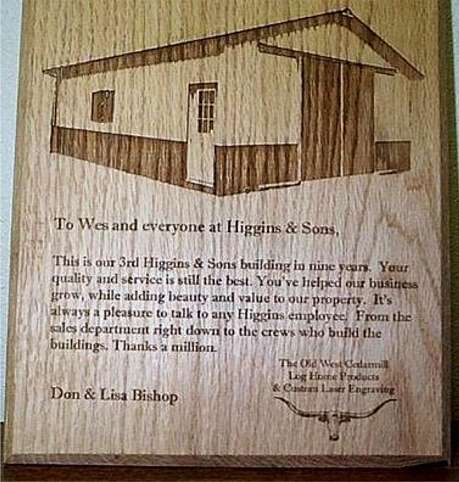 To Wes and everyone at Higgins & Sons,
This is our 3rd Higgins & Sons building in nine years. Your
quality and service is still the best. You've helped our business
grow, while adding beauty and value to our property. It's
always a pleasure to talk to any Higgins employee! From the
sales department right down to the crews who build the
buildings. Thanks a million.
The Old West Cedarmill
Log Home Products
& Custom Laser Engraving
Don & Lisa Bishop